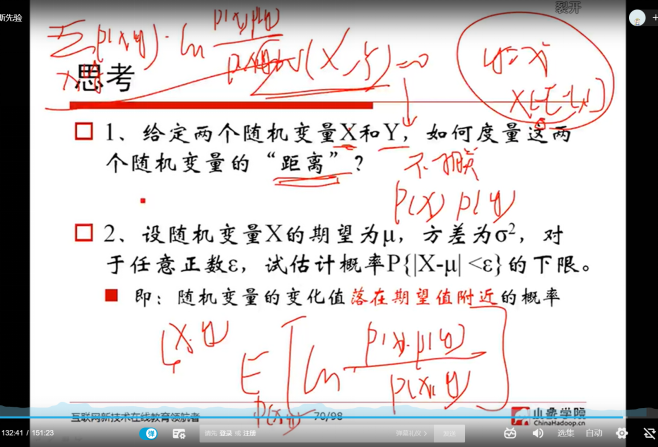 Σ p(x,y) · ln p(x)p(y)
x,y
思考
1、给定两个随机变量X和Y，如何度量这两
个随机变量的“距离”？
不相关
p(x) p(y)
2、设随机变量X的期望为μ，方差为σ²，对
于任意正数ε，试估计概率P{|X-μ| <ε}的下限。
即：随机变量的变化值落在期望值附近的概率
(x,y)
E [ln p(x)·p(y) / p(x,y)]
p(x,y)
互联网新技术在线教育领航者
70/98
小象学院
ChinaHadoop.cn
132:41 / 151:23
请先 登录 或 注册
弹幕礼仪 >
发送
选集
自动